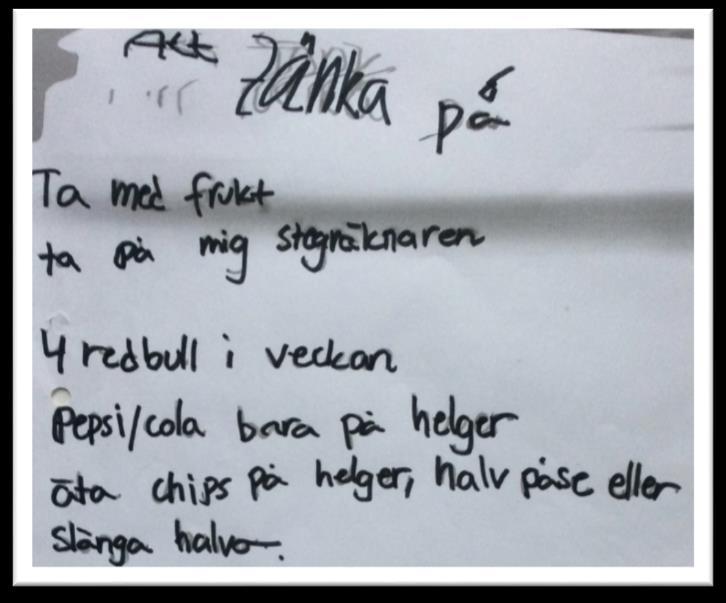 Att Tänka på
Ta med frukt
ta på mig stegräknaren
4 redbull i veckan
Pepsi/cola bara på helger
äta chips på helger, halv påse eller
slänga halva.